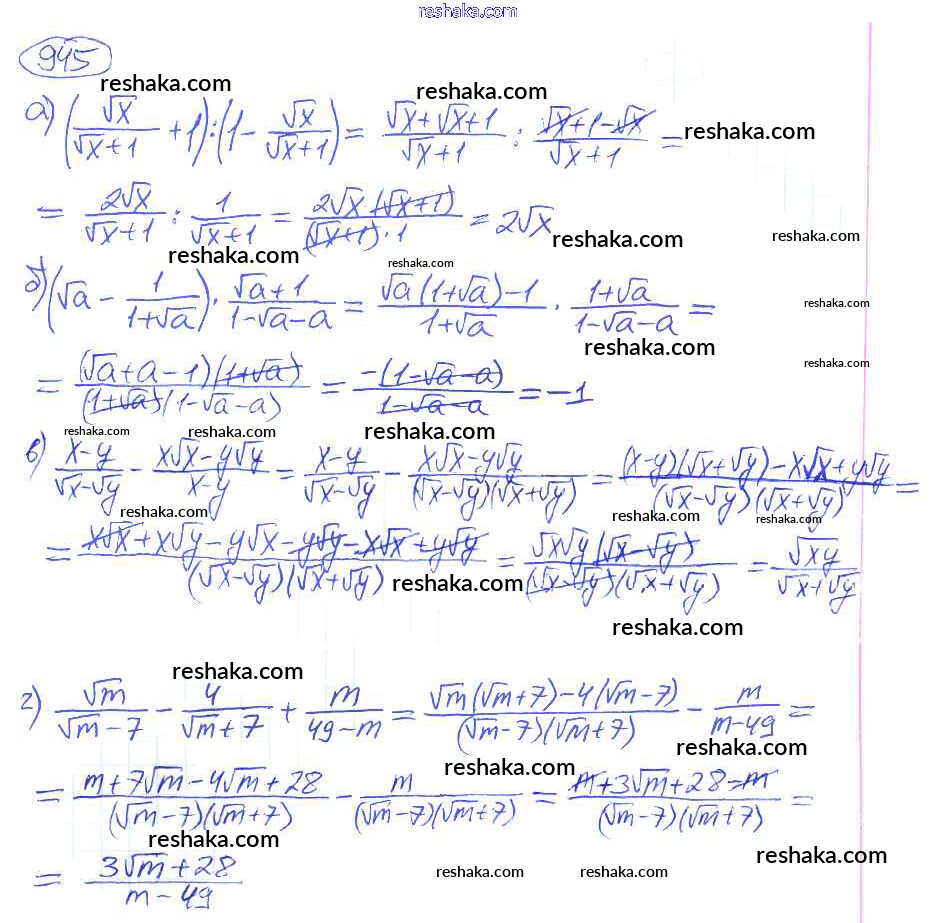 reshaka.com
945
reshaka.com reshaka.com
а) (√x/(√x+1) + 1):(1 - √x/(√x+1)) = (√x+√x+1)/(√x+1) : (√x+1-√x)/(√x+1) = reshaka.com
= 2√x/(√x+1) : 1/(√x+1) = 2√x·(√x+1)/((√x+1)·1) = 2√x reshaka.com reshaka.com
reshaka.com reshaka.com
б) (√a - 1/(1+√a)) · (√a+1)/(1-√a-a) = (√a(1+√a)-1)/(1+√a) · (1+√a)/(1-√a-a) = reshaka.com
reshaka.com
= (√a+a-1)(1+√a)/((1+√a)(1-√a-a)) = -(1-√a-a)/(1-√a-a) = -1 reshaka.com
reshaka.com reshaka.com reshaka.com
в) (x-y)/(√x-√y) - (x√x-y√y)/(x-y) = (x-y)/(√x-√y) - (x√x-y√y)/((√x-√y)(√x+√y)) = ((x-y)(√x+√y)-x√x+y√y)/((√x-√y)(√x+√y)) =
reshaka.com reshaka.com reshaka.com
= (x√x+x√y-y√x-y√y-x√x+y√y)/((√x-√y)(√x+√y)) = √x√y(√x-√y)/((√x-√y)(√x+√y)) = √xy/(√x+√y)
reshaka.com
reshaka.com
reshaka.com
г) √m/(√m-7) - 4/(√m+7) + m/(49-m) = (√m(√m+7)-4(√m-7))/((√m-7)(√m+7)) - m/(m-49) =
reshaka.com
reshaka.com
= (m+7√m-4√m+28)/((√m-7)(√m+7)) - m/((√m-7)(√m+7)) = (m+3√m+28-m)/((√m-7)(√m+7)) =
reshaka.com reshaka.com
= (3√m+28)/(m-49) reshaka.com reshaka.com